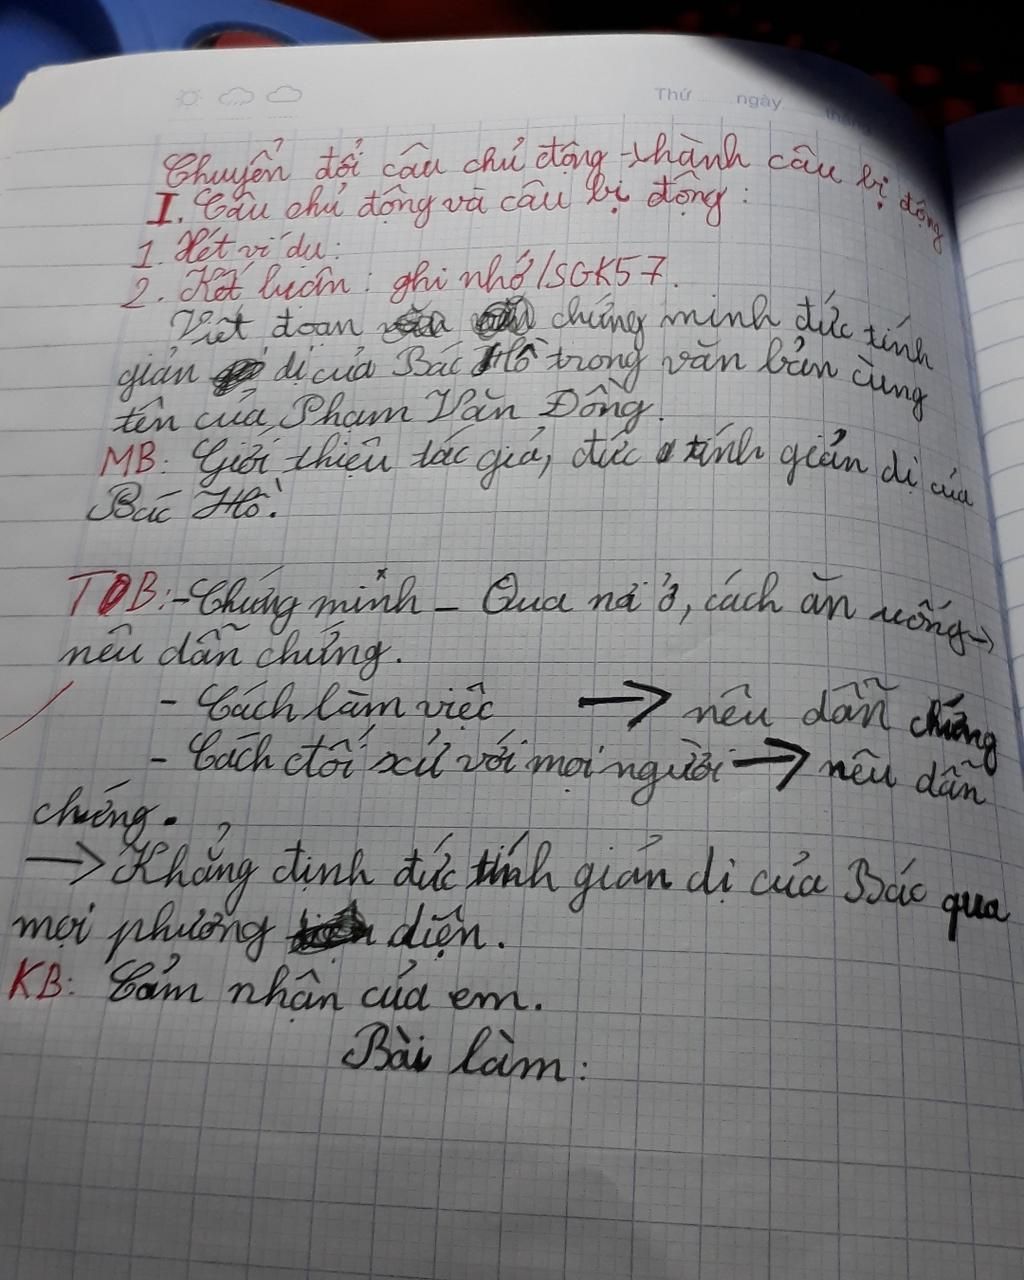 Thứ ngày tháng
Chuyển đổi câu chủ động thành câu bị động
I. Câu chủ động và câu bị động:
1. Xét ví dụ:
2. Kết luận: ghi nhớ/SGK57.
Viết đoạn chứng minh đức tính
giản dị của Bác Hồ trong văn bản cùng
tên của Phạm Văn Đồng.
MB: Giới thiệu tác giả, đức tính giản dị của
Bác Hồ.
TB:-Chứng minh - Qua nơi ở, cách ăn uống→
nêu dẫn chứng.
- Cách làm việc → nêu dẫn chứng
- Cách đối xử với mọi người → nêu dẫn
chứng.
→ Khẳng định đức tính giản dị của Bác qua
mọi phương diện.
KB: Cảm nhận của em.
Bài làm: